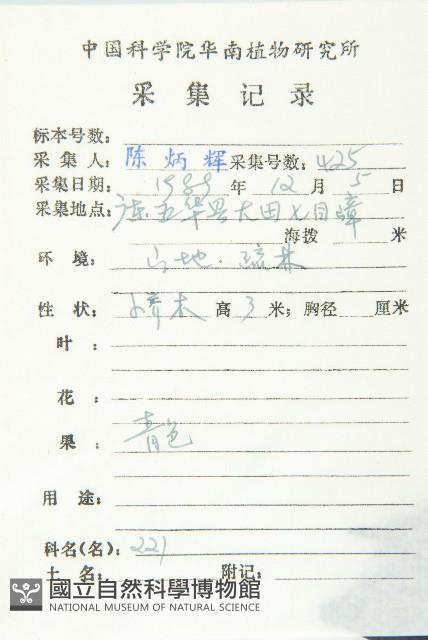 中国科学院华南植物研究所
采集记录
标本号数:
采集人: 陈炳辉 采集号数: 425
采集日期: 1989 年 12 月 5 日
采集地点: 广东五华县大田七目嶂
海拨 米
环境: 山地·疏林
性状: 乔木 高 3 米; 胸径 厘米
叶:
花:
果: 青色
用途:
科名(名): 221
土名: 附记:
國立自然科學博物館
NATIONAL MUSEUM OF NATURAL SCIENCE